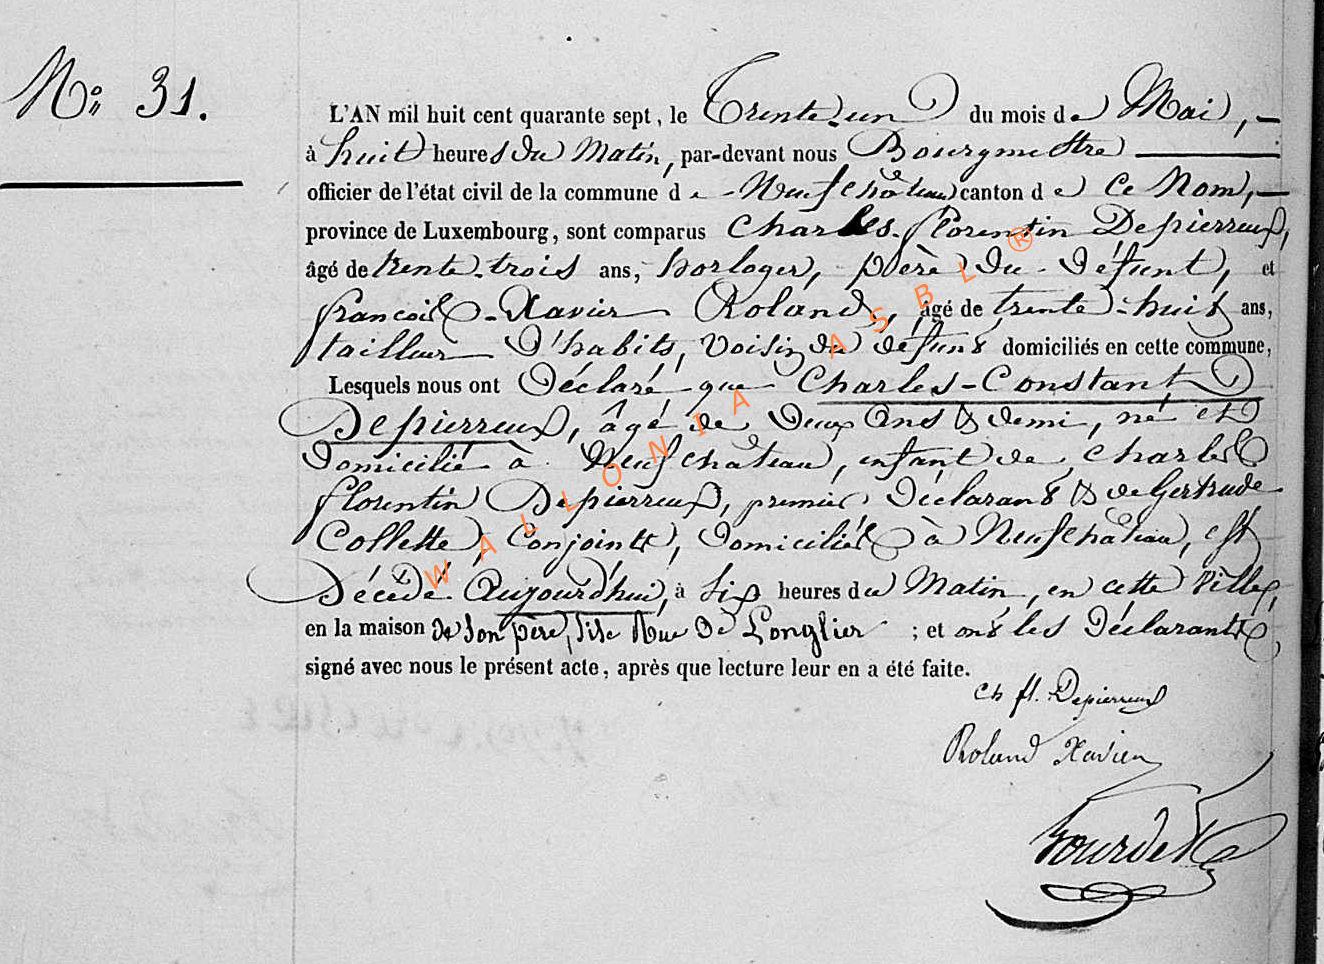 N° 31.
L'AN mil huit cent quarante sept, le Trente-un du mois de Mai,
à huit heures du Matin, par-devant nous Bourgmestre
officier de l'état civil de la commune de Neufchâteau canton de ce Nom,
province de Luxembourg, sont comparus Charles-florentin Depierreux,
âgé de trente-trois ans, horloger, père du défunt, et
françois-Xavier Roland, âgé de trente-huit ans,
tailleur d'habits, voisin du défunt domiciliés en cette commune,
Lesquels nous ont Déclaré que Charles-Constant
Depierreux, âgé de deux ans & demi, né et
domicilié à Neufchâteau, enfant de Charles
florentin Depierreux, premier Déclarant & de Gertrude
Collette, Conjoints, domiciliés à Neufchâteau, est
Décédé Aujourd'hui, à six heures du Matin, en cette Ville,
en la maison de son père, sise Rue de Longlier ; et ont les Déclarants
signé avec nous le présent acte, après que lecture leur en a été faite.
Ch fl. Depierreux
Roland Xavier
WALLONIA ASBL ®